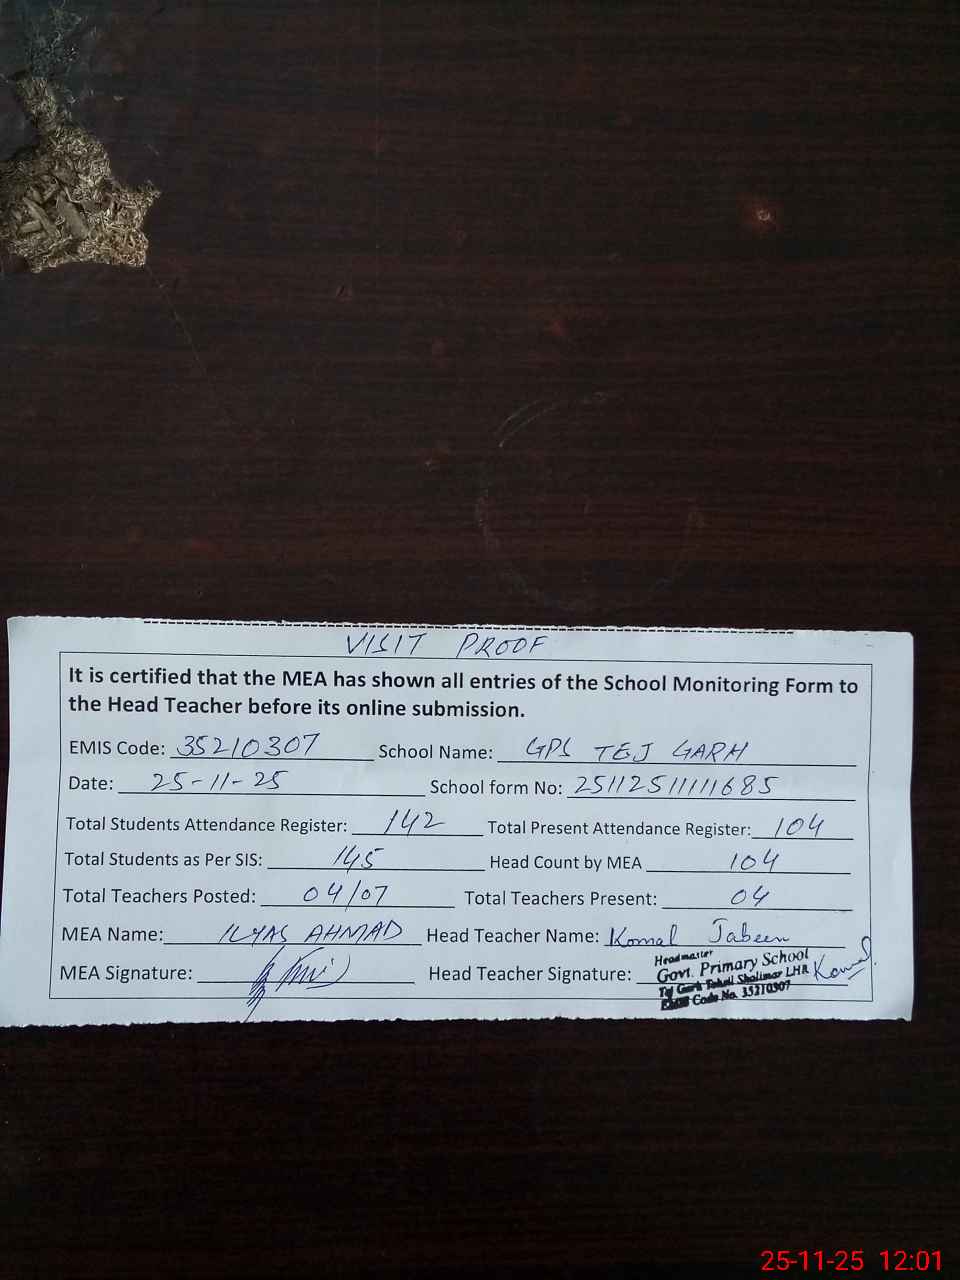 VISIT PROOF
It is certified that the MEA has shown all entries of the School Monitoring Form to
the Head Teacher before its online submission.
EMIS Code: 35210307 School Name: GPS TEJ GARH
Date: 25-11-25 School form No: 25112511111685
Total Students Attendance Register: 142 Total Present Attendance Register: 104
Total Students as Per SIS: 145 Head Count by MEA 104
Total Teachers Posted: 04/07 Total Teachers Present: 04
MEA Name: ILYAS AHMAD Head Teacher Name: Komal Jabeen
MEA Signature: Head Teacher Signature: Komal
Headmaster
Govt. Primary School
Tej Garh Tehsil Shalimar LHR
EMIS Code No. 35210307
25-11-25 12:01